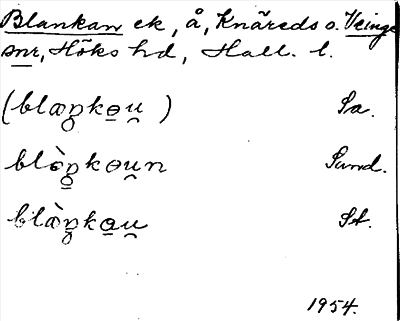 Blankan ek, å, Knäreds o. Veinge
snr, Höks hd, Hall. l.
(blaŋkəu̯ ) Sa.
blòŋkəu̯n Sund.
blàŋkəu̯ St.
1954.